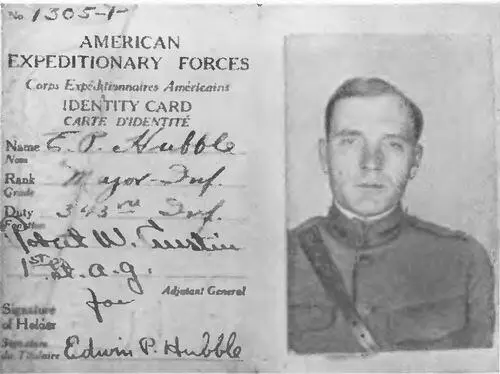 No. 1305-I-
AMERICAN
EXPEDITIONARY FORCES
Corps Expéditionnaires Américains
IDENTITY CARD
CARTE D'IDENTITÉ
Name E. P. Hubble
Nom
Rank Major - Inf.
Grade
Duty 343rd Inf.
Fonction
Robert W.
1st Lt. a.g.
Adjutant General
for
Signature
of Holder
Signature
du Titulaire Edwin P. Hubble